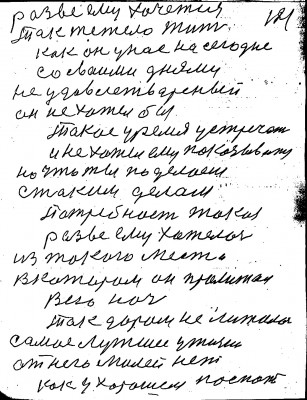 разве ему хочется 121
так тежело жит
как он у нас на сегодне
со своими днями
не удовлетвареный
он не хотел бы
такое уремя устречат
и не хотел ему показыват
но что ти поделаеш
с таким делам
Патребност такая
разве ему хателос
из такого места
в катором он пралижал
всю ноч
так даром не лижала
самое лутшее у жизни
от него мылей нет
как у харошем